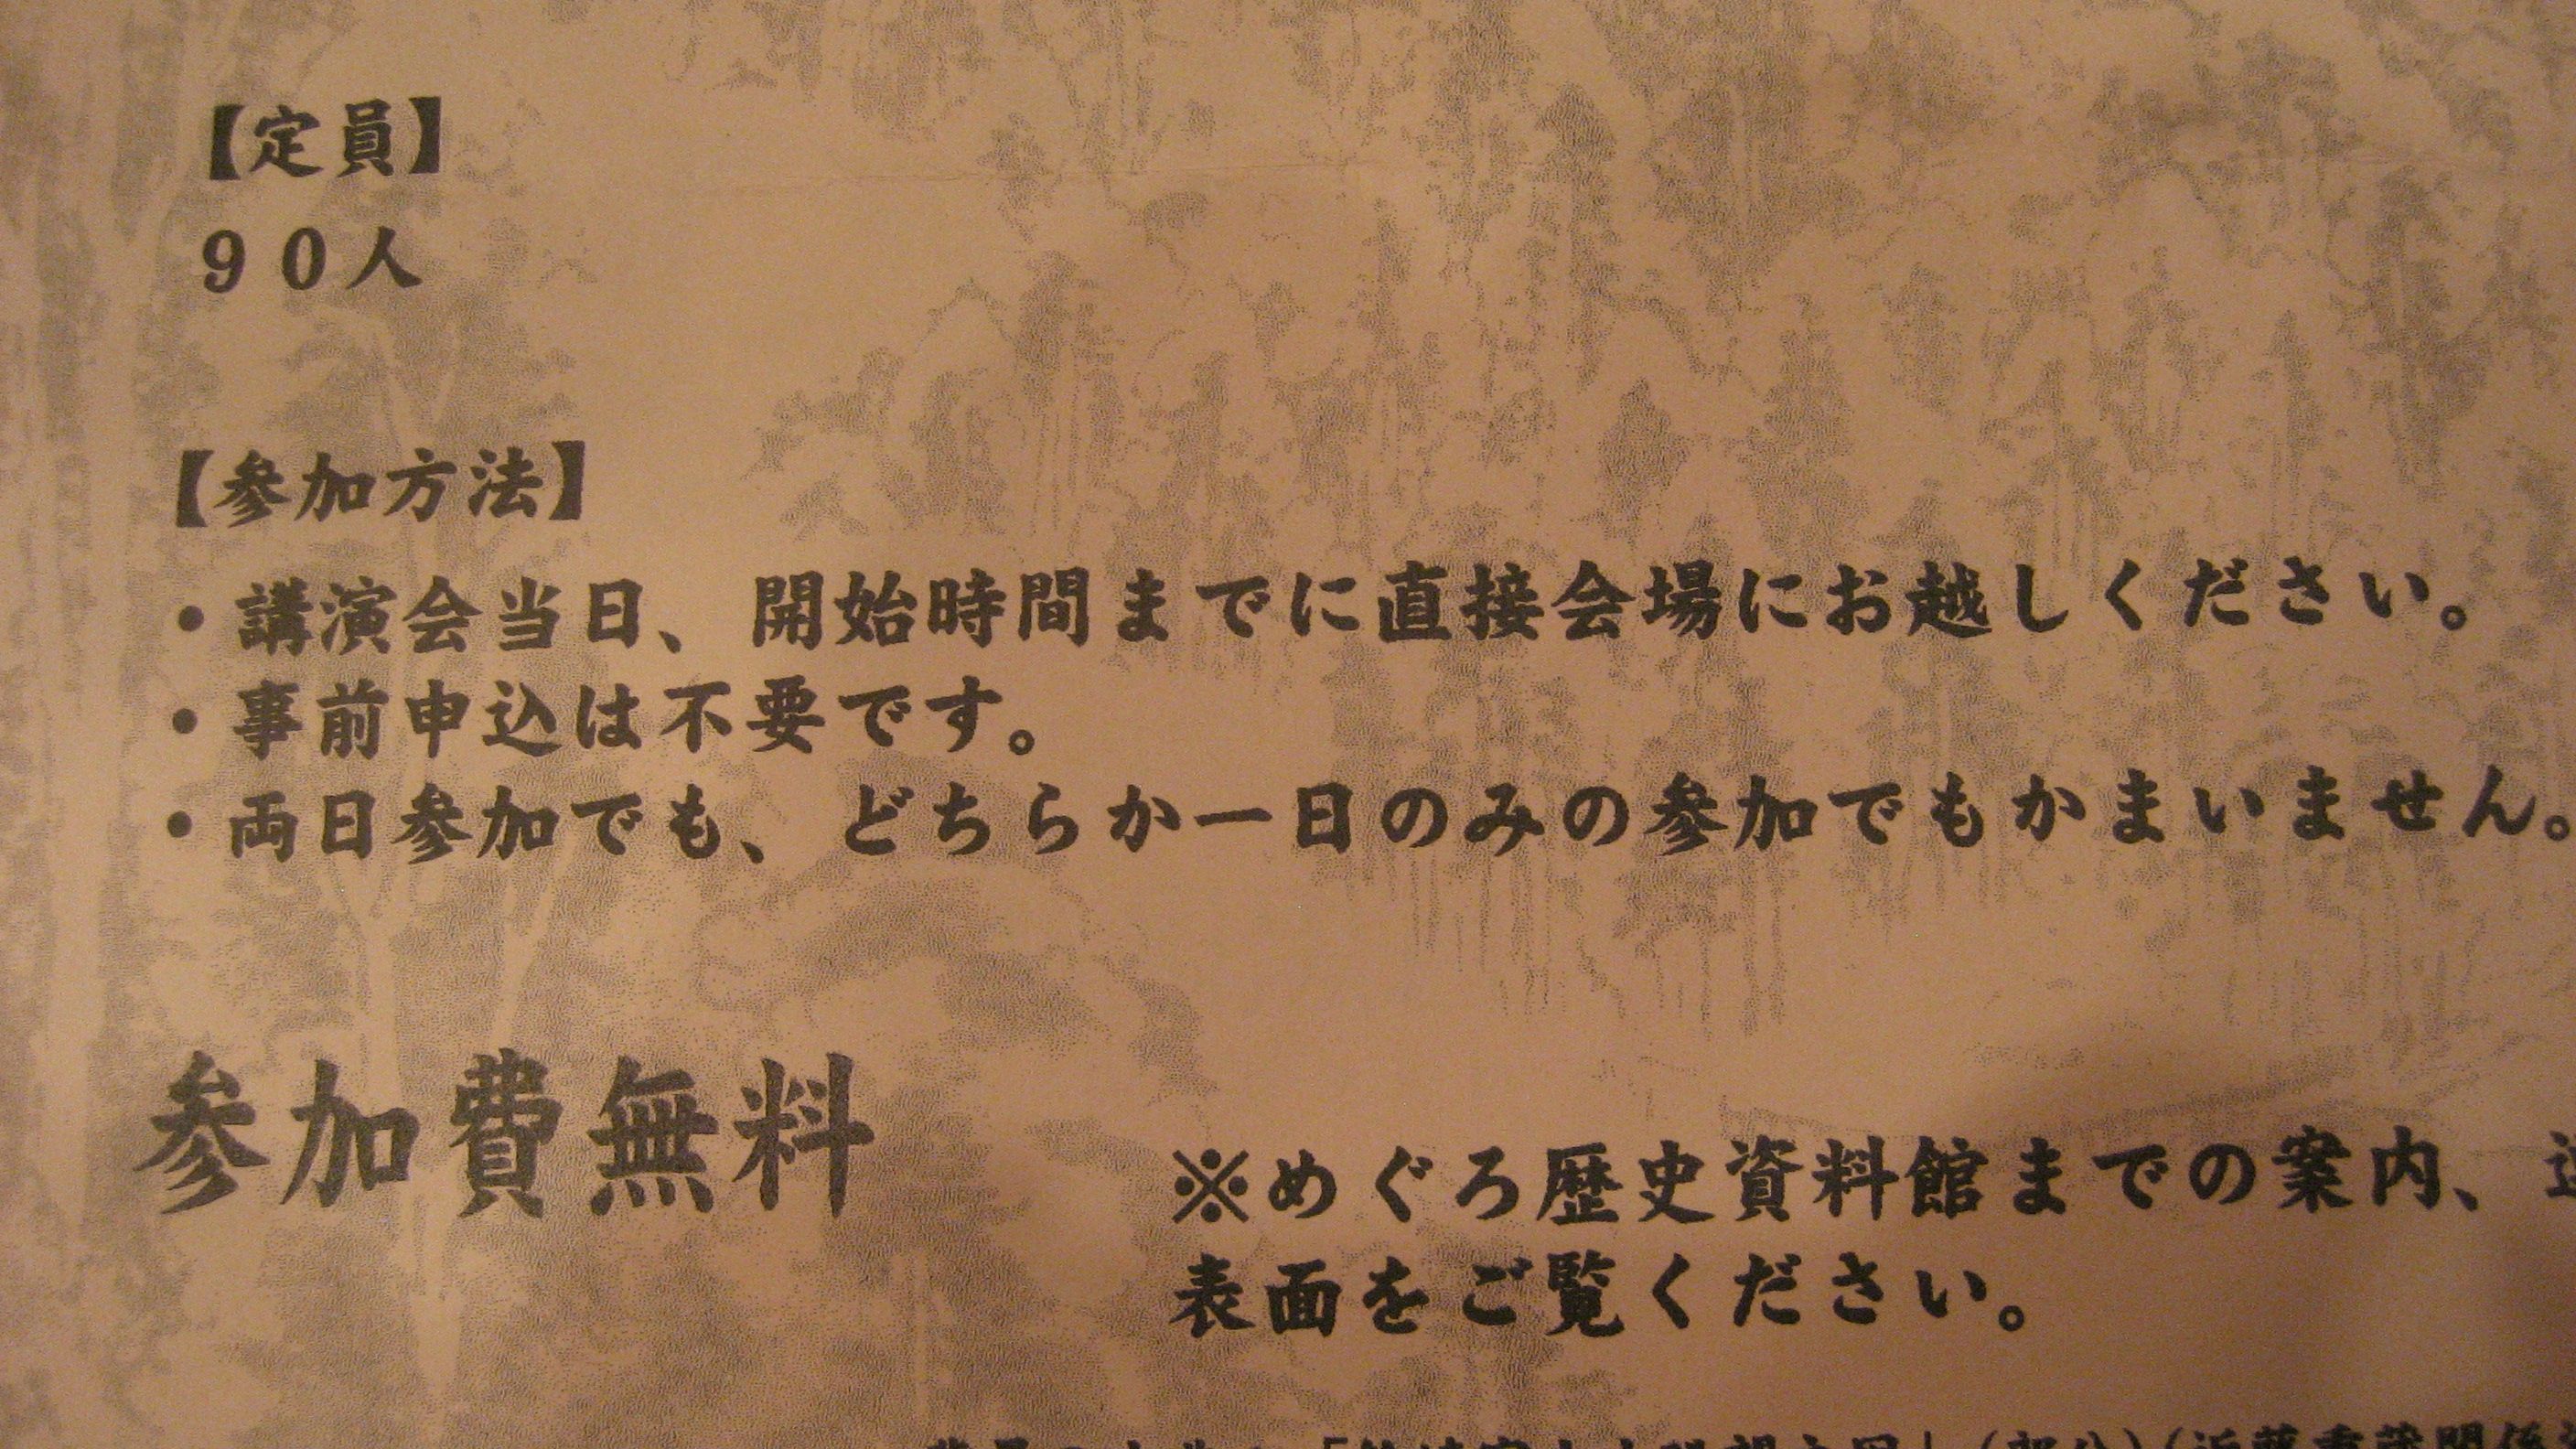 【定員】
９０人
【参加方法】
・講演会当日、開始時間までに直接会場にお越しください。
・事前申込は不要です。
・両日参加でも、どちらか一日のみの参加でもかまいません。
参加費無料
※めぐろ歴史資料館までの案内、
表面をご覧ください。